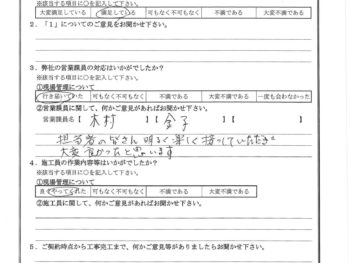 ※該当する項目に○を記入して下さい。
大変満足している 満足している 可もなく不可もなく 不満である 大変不満である
2．「1」についてのご意見をお聞かせ下さい。
3．弊社の営業課員の対応はいかがでしたか？
※該当する項目に○を記入して下さい。
①現場管理について
行き届いていた 可もなく不可もなく 不満である 大変不満である 一度も会わなかった
②営業課員に関して、何かご意見があればお聞かせ下さい。
営業課員名【 木村 】【 金子 】
担当者の皆さん 明るく楽しく接していただき
大変良かったと思います
4．施工員の作業内容等はいかがでしたか？
※該当する項目に○を記入して下さい。
①現場管理について
良くやってくれた 可もなく不可もなく 不満である 大変不満である
②施工員に関して、何かご意見があればお聞かせ下さい。
5．ご契約時点から工事完工まで、何かご意見等がありましたらお聞かせ下さい。